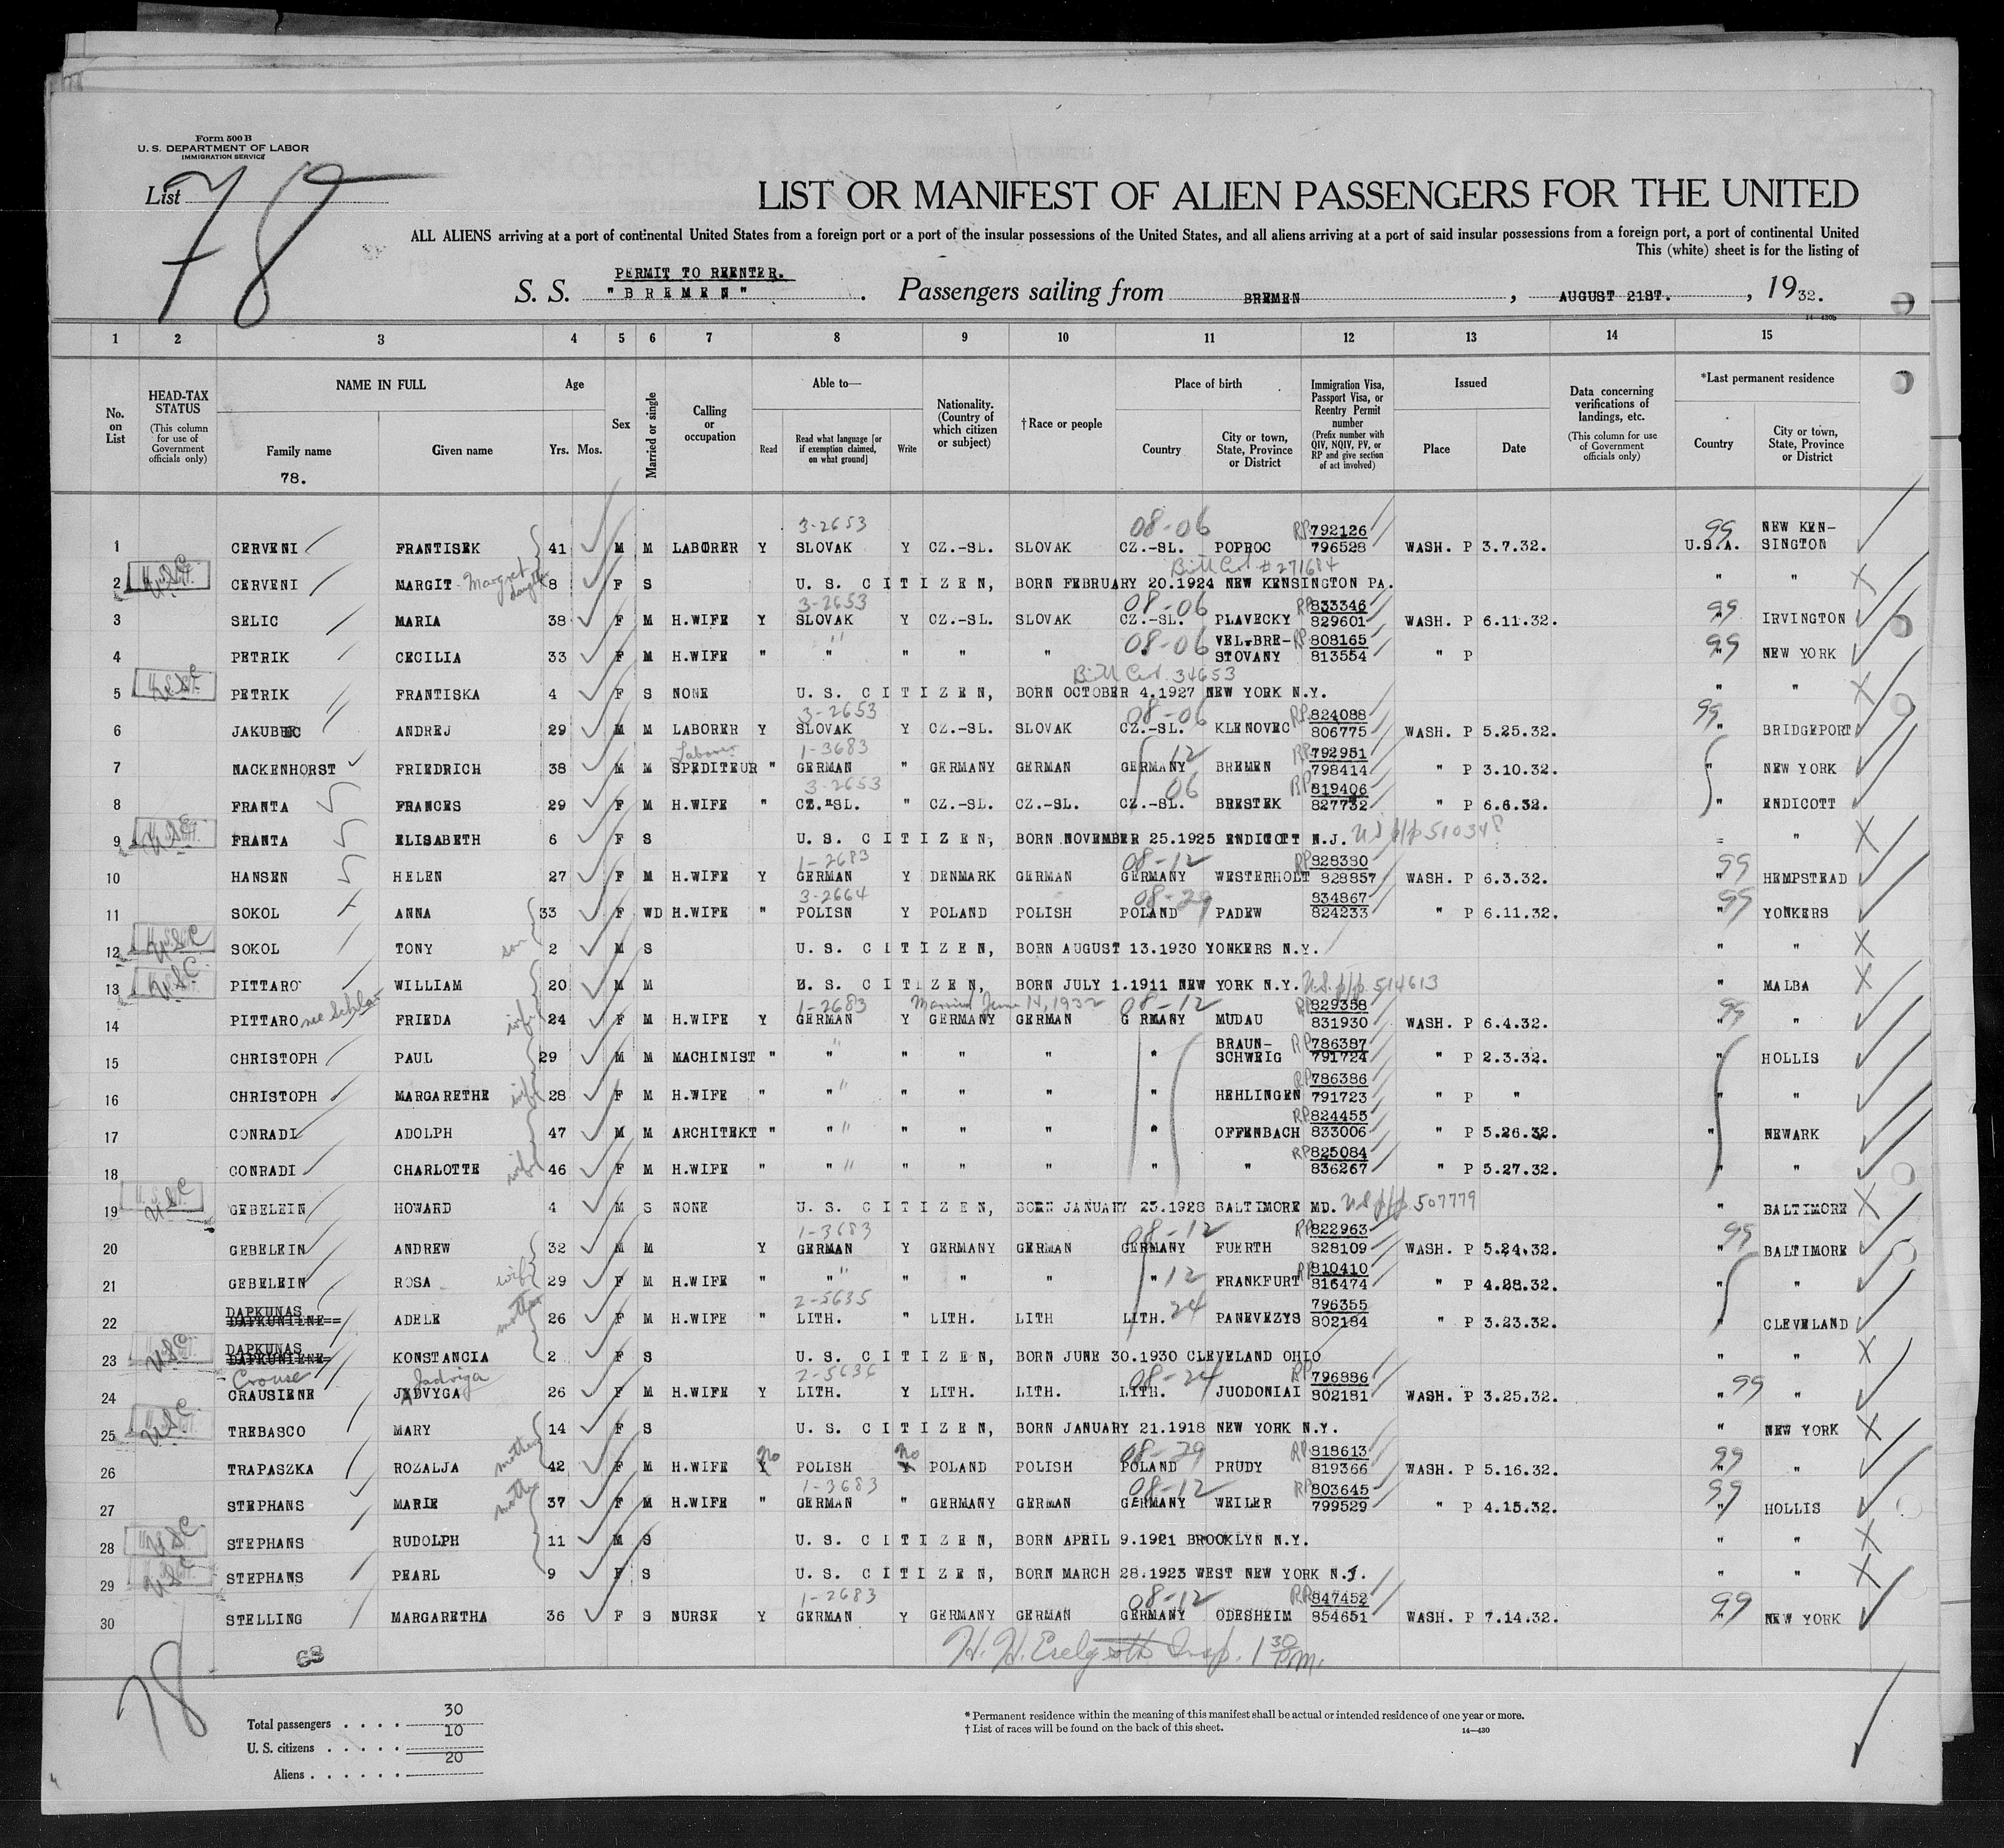 Form 500 B
U. S. DEPARTMENT OF LABOR
IMMIGRATION SERVICE
List 78
LIST OR MANIFEST OF ALIEN PASSENGERS FOR THE UNITED
ALL ALIENS arriving at a port of continental United States from a foreign port or a port of the insular possessions of the United States, and all aliens arriving at a port of said insular possessions from a foreign port, a port of continental United
This (white) sheet is for the listing of
PERMIT TO REENTER.
S. S. "BREMEN" . Passengers sailing from BREMEN , AUGUST 21ST. , 19 32.
14—430b
1 2 3 4 5 6 7 8 9 10 11 12 13 14 15
No. on List
HEAD-TAX STATUS (This column for use of Government officials only)
NAME IN FULL Family name Given name
78.
Age Yrs. Mos.
Sex
Married or single
Calling or occupation
Able to— Read Read what language [or if exemption claimed, on what ground] Write
Nationality. (Country of which citizen or subject)
†Race or people
Place of birth Country City or town, State, Province or District
Immigration Visa, Passport Visa, or Reentry Permit number (Prefix number with QIV, NQIV, PV, or RP and give section of act involved)
Issued Place Date
Data concerning verifications of landings, etc. (This column for use of Government officials only)
*Last permanent residence Country City or town, State, Province or District
3-2653 08-06 RP 792126 99 NEW KEN-
1 CERVENI FRANTISEK 41 M M LABORER Y SLOVAK Y CZ.-SL. SLOVAK CZ.-SL. POPROC 796528 WASH. P 3.7.32. U.S.A. SINGTON
Birth Cert #271684
2 USC CERVENI MARGIT Margret daughter 8 F S U. S. CITIZEN, BORN FEBRUARY 20.1924 NEW KENSINGTON PA. " "
3-2653 08-06 RP 833346 99
3 SELIC MARIA 38 F M H.WIFE Y SLOVAK Y CZ.-SL. SLOVAK CZ.-SL. PLAVECKY 829601 WASH. P 6.11.32. " IRVINGTON
08-06 VEL.BRE- RP 808165 99
4 PETRIK CECILIA 33 F M H.WIFE " " " " " " STOVANY 813554 " P " NEW YORK
Birth Cert. 34653
5 USC PETRIK FRANTISKA 4 F S NONE U. S. CITIZEN, BORN OCTOBER 4.1927 NEW YORK N.Y. " "
3-2653 08-06 RP 824088 99
6 JAKUBEC ANDREJ 29 M M LABORER Y SLOVAK Y CZ.-SL. SLOVAK CZ.-SL. KLENOVEC 806775 WASH. P 5.25.32. " BRIDGEPORT
Laborer 1-3683 12 RP 792951
7 NACKENHORST FRIEDRICH 38 M M SPEDITEUR " GERMAN " GERMANY GERMAN GERMANY BREMEN 798414 " P 3.10.32. " NEW YORK
3-2653 06 RP 819406
8 FRANTA FRANCES 29 F M H.WIFE " CZ.-SL. " CZ.-SL. CZ.-SL. CZ.-SL. BRESTEK 827732 " P 6.6.32. " ENDICOTT
9 USC FRANTA ELISABETH 6 F S U. S. CITIZEN, BORN NOVEMBER 25.1925 ENDICOTT N.J. = "
1-2683 08-12 RP 828380 99
10 HANSEN HELEN 27 F M H.WIFE Y GERMAN Y DENMARK GERMAN GERMANY WESTERHOLT 828857 WASH. P 6.3.32. " HEMPSTEAD
3-2664 08-29 834867 99
11 SOKOL ANNA 33 F WD H.WIFE " POLISN Y POLAND POLISH POLAND PADEW 824233 " P 6.11.32. " YONKERS
12 USC SOKOL TONY son 2 M S U. S. CITIZEN, BORN AUGUST 13.1930 YONKERS N.Y. " "
13 USC PITTARO WILLIAM 20 M M U. S. CITIZEN, BORN JULY 1.1911 NEW YORK N.Y. U.S. p/p. 514613 " MALBA
1-2683 Married June 14, 1932 08-12 RP 829358 99
14 PITTARO FRIEDA wife 24 F M H.WIFE Y GERMAN Y GERMANY GERMAN G RMANY MUDAU 831930 WASH. P 6.4.32. " "
BRAUN- RP 786387
15 CHRISTOPH PAUL 29 M M MACHINIST " " " " " " SCHWEIG 791724 " P 2.3.32. " HOLLIS
RP 786386
16 CHRISTOPH MARGARETHE wife 28 F M H.WIFE " " " " " " HEHLINGEN 791723 " P " " "
RP 824455
17 CONRADI ADOLPH 47 M M ARCHITEKT " " " " " " OFFENBACH 833006 " P 5.26.32. " NEWARK
RP 825084
18 CONRADI CHARLOTTE wife 46 F M H.WIFE " " " " " " " 836267 " P 5.27.32. " "
19 USC GEBELEIN HOWARD 4 M S NONE U. S. CITIZEN, BORN JANUARY 23.1928 BALTIMORE MD. US p/p. 507779 " BALTIMORE
1-3683 08-12 RP 822963 99
20 GEBELEIN ANDREW 32 M M Y GERMAN Y GERMANY GERMAN GERMANY FUERTH 828109 WASH. P 5.24.32. " BALTIMORE
RP 810410
21 GEBELEIN ROSA wife 29 F M H.WIFE " " " " " " 12 FRANKFURT 816474 " P 4.28.32. " "
DAPKUNAS 2-5635 24 796355
22 DAPKUNIENE ADELE mother 26 F M H.WIFE " LITH. " LITH. LITH LITH. PANEVEZYS 802184 " P 3.23.32. " CLEVELAND
DAPKUNAS
23 USC DAPKUNIENE KONSTANCIA 2 F S U. S. CITIZEN, BORN JUNE 30.1930 CLEVELAND OHIO " "
Crouse Jadviga 2-5636 08-24 RP 796886 99
24 CRAUSIENE JADVYGA 26 F M H.WIFE Y LITH. Y LITH. LITH. LITH. JUODONIAI 802181 WASH. P 3.25.32. " "
25 USC TREBASCO MARY 14 F S U. S. CITIZEN, BORN JANUARY 21.1918 NEW YORK N.Y. " NEW YORK
no no 08-29 RP 818613 99
26 TRAPASZKA ROZALJA mother 42 F M H.WIFE Y POLISH Y POLAND POLISH POLAND PRUDY 819366 WASH. P 5.16.32. " "
1-3683 08-12 RP 803645 99
27 STEPHANS MARIE mother 37 F M H.WIFE " GERMAN " GERMANY GERMAN GERMANY WEILER 799529 " P 4.15.32. " HOLLIS
28 USC STEPHANS RUDOLPH 11 M S U. S. CITIZEN, BORN APRIL 9.1921 BROOKLYN N.Y. " "
29 USC STEPHANS PEARL 9 F S U. S. CITIZEN, BORN MARCH 28.1923 WEST NEW YORK N.J. " "
1-2683 08-12 RP 847452 99
30 STELLING MARGARETHA 36 F S NURSE Y GERMAN Y GERMANY GERMAN GERMANY ODESHEIM 854651 WASH. P 7.14.32. " NEW YORK
Insp. 1 30 P.m.
78
Total passengers . . . . 30
U. S. citizens . . . . . 10
Aliens . . . . . . 20
* Permanent residence within the meaning of this manifest shall be actual or intended residence of one year or more.
† List of races will be found on the back of this sheet.
14—430